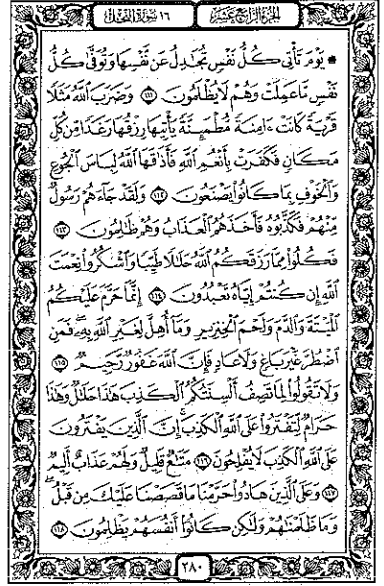 الجزء الرابع عشر
١٦ سورة النحل
۞ يَوْمَ تَأْتِي كُلُّ نَفْسٍ تُجَادِلُ عَن نَّفْسِهَا وَتُوَفَّىٰ كُلُّ
نَفْسٍ مَّا عَمِلَتْ وَهُمْ لَا يُظْلَمُونَ ١١١ وَضَرَبَ ٱللَّهُ مَثَلًا
قَرْيَةً كَانَتْ ءَامِنَةً مُّطْمَئِنَّةً يَأْتِيهَا رِزْقُهَا رَغَدًا مِّن كُلِّ
مَكَانٍ فَكَفَرَتْ بِأَنْعُمِ ٱللَّهِ فَأَذَاقَهَا ٱللَّهُ لِبَاسَ ٱلْجُوعِ
وَٱلْخَوْفِ بِمَا كَانُوا۟ يَصْنَعُونَ ١١٢ وَلَقَدْ جَآءَهُمْ رَسُولٌ
مِّنْهُمْ فَكَذَّبُوهُ فَأَخَذَهُمُ ٱلْعَذَابُ وَهُمْ ظَالِمُونَ ١١٣
فَكُلُوا۟ مِمَّا رَزَقَكُمُ ٱللَّهُ حَلَالًا طَيِّبًا وَٱشْكُرُوا۟ نِعْمَتَ
ٱللَّهِ إِن كُنتُمْ إِيَّاهُ تَعْبُدُونَ ١١٤ إِنَّمَا حَرَّمَ عَلَيْكُمُ
ٱلْمَيْتَةَ وَٱلدَّمَ وَلَحْمَ ٱلْخِنزِيرِ وَمَآ أُهِلَّ لِغَيْرِ ٱللَّهِ بِهِۦ فَمَنِ
ٱضْطُرَّ غَيْرَ بَاغٍ وَلَا عَادٍ فَإِنَّ ٱللَّهَ غَفُورٌ رَّحِيمٌ ١١٥
وَلَا تَقُولُوا۟ لِمَا تَصِفُ أَلْسِنَتُكُمُ ٱلْكَذِبَ هَٰذَا حَلَالٌ وَهَٰذَا
حَرَامٌ لِّتَفْتَرُوا۟ عَلَى ٱللَّهِ ٱلْكَذِبَ إِنَّ ٱلَّذِينَ يَفْتَرُونَ
عَلَى ٱللَّهِ ٱلْكَذِبَ لَا يُفْلِحُونَ ١١٦ مَتَاعٌ قَلِيلٌ وَلَهُمْ عَذَابٌ أَلِيمٌ
١١٧ وَعَلَى ٱلَّذِينَ هَادُوا۟ حَرَّمْنَا مَا قَصَصْنَا عَلَيْكَ مِن قَبْلُ
وَمَا ظَلَمْنَاهُمْ وَلَٰكِن كَانُوٓا۟ أَنفُسَهُمْ يَظْلِمُونَ ١١٨
٢٨٠